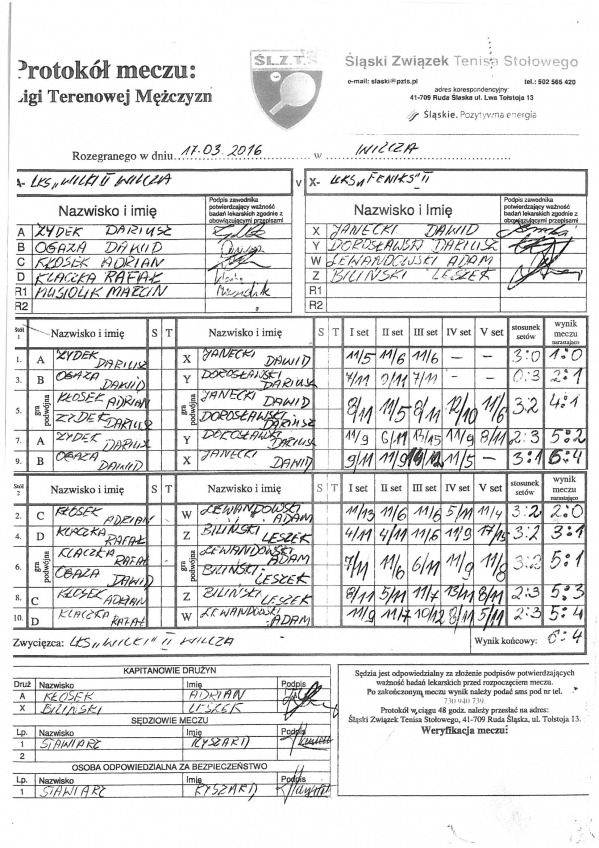 ŚL.Z.T.S
Protokół meczu:
Ligi Terenowej Mężczyzn
Śląski Związek Tenisa Stołowego
e-mail: slaski@pzts.pl tel.: 502 565 420
adres korespondencyjny:
41-709 Ruda Śląska ul. Lwa Tołstoja 13
Śląskie. Pozytywna energia
Rozegranego w dniu 17.03.2016 w WILCZA
A- LKS „WILKI" II WILCZA V X- LKS „FENIKS" II
Nazwisko i imię Podpis zawodnika potwierdzający ważność badań lekarskich zgodnie z obowiązującymi przepisami Nazwisko i Imię Podpis zawodnika potwierdzający ważność badań lekarskich zgodnie z obowiązującymi przepisami
A ŻYDEK DARIUSZ X JANECKI DAWID
B OGAZA DAWID Y DOROSŁAWSKI DARIUSZ
C KŁOSEK ADRIAN W LEWANDOWSKI ADAM
D KLACZKA RAFAŁ Z BILIŃSKI LESZEK
R1 MUSIOLIK MARCIN R1
R2 R2
Stół 1 Nazwisko i imię S T Nazwisko i imię S T I set II set III set IV set V set stosunek setów wynik meczu narastająco
1. A ŻYDEK DARIUSZ X JANECKI DAWID 11/5 11/6 11/6 – – 3:0 1:0
3. B OGAZA DAWID Y DOROSŁAWSKI DARIUSZ 7/11 9/11 7/11 – – 0:3 2:1
5. gra podwójna KŁOSEK ADRIAN ŻYDEK DARIUSZ gra podwójna JANECKI DAWID DOROSŁAWSKI DARIUSZ 8/11 11/5 8/11 12/10 11/6 3:2 4:1
7. A ŻYDEK DARIUSZ Y DOROSŁAWSKI DARIUSZ 11/9 6/11 13/15 11/9 8/11 2:3 5:2
9. B OGAZA DAWID X JANECKI DAWID 9/11 11/9 11/5 – 3:1 6:4
Stół 2 Nazwisko i imię S T Nazwisko i imię S T I set II set III set IV set V set stosunek setów wynik meczu narastająco
2. C KŁOSEK ADRIAN W LEWANDOWSKI ADAM 11/13 11/6 11/6 5/11 11/4 3:2 2:0
4. D KLACZKA RAFAŁ Z BILIŃSKI LESZEK 4/11 4/11 11/6 11/9 3:2 3:1
6. gra podwójna KLACZKA RAFAŁ OGAZA DAWID gra podwójna LEWANDOWSKI ADAM BILIŃSKI LESZEK 7/11 11/6 6/11 11/9 11/8 3:2 5:1
8. C KŁOSEK ADRIAN Z BILIŃSKI LESZEK 8/11 5/11 11/7 13/11 8/11 2:3 5:3
10. D KLACZKA RAFAŁ W LEWANDOWSKI ADAM 11/9 11/7 10/12 8/11 5/11 2:3 5:4
Zwycięzca: LKS „WILKI" II WILCZA Wynik końcowy: 6:4
KAPITANOWIE DRUŻYN
Druż Nazwisko Imię Podpis
A KŁOSEK ADRIAN
X BILIŃSKI LESZEK
SĘDZIOWIE MECZU
Lp. Nazwisko Imię Podpis
1 SIAWIARZ RYSZARD
2
OSOBA ODPOWIEDZIALNA ZA BEZPIECZEŃSTWO
Lp. Nazwisko Imię Podpis
1 SIAWIARZ RYSZARD
Sędzia jest odpowiedzialny za złożenie podpisów potwierdzających
ważność badań lekarskich przed rozpoczęciem meczu.
Po zakończonym meczu wynik należy podać sms pod nr tel.
730 940 739
Protokół w ciągu 48 godz. należy przesłać na adres:
Śląski Związek Tenisa Stołowego, 41-709 Ruda Śląska, ul. Tołstoja 13.
Weryfikacja meczu: